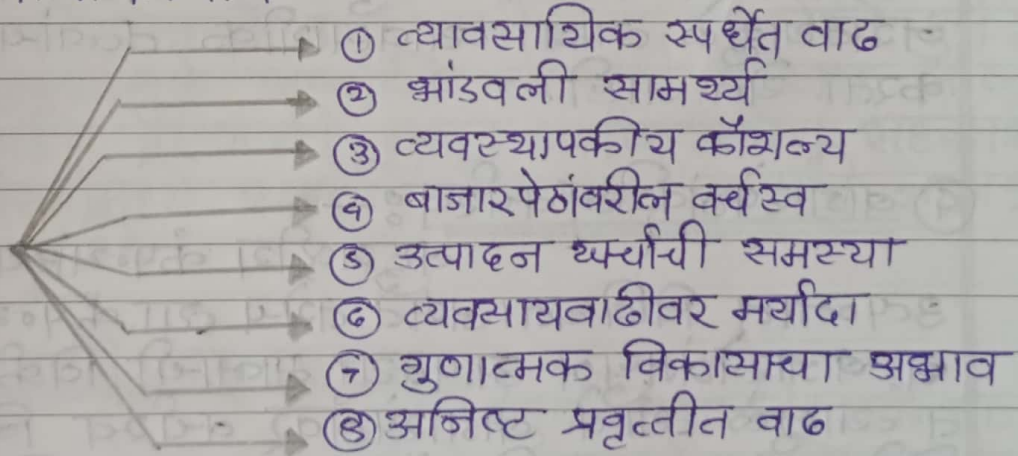 ① व्यावसायिक स्पर्धेत वाढ
② भांडवली सामर्थ्य
③ व्यवस्थापकीय कौशल्य
④ बाजारपेठांवरील वर्चस्व
⑤ उत्पादन खर्चाची समस्या
⑥ व्यवसायवाढीवर मर्यादा
⑦ गुणात्मक विकासाचा अभाव
⑧ अनिष्ट प्रवृत्तीत वाढ